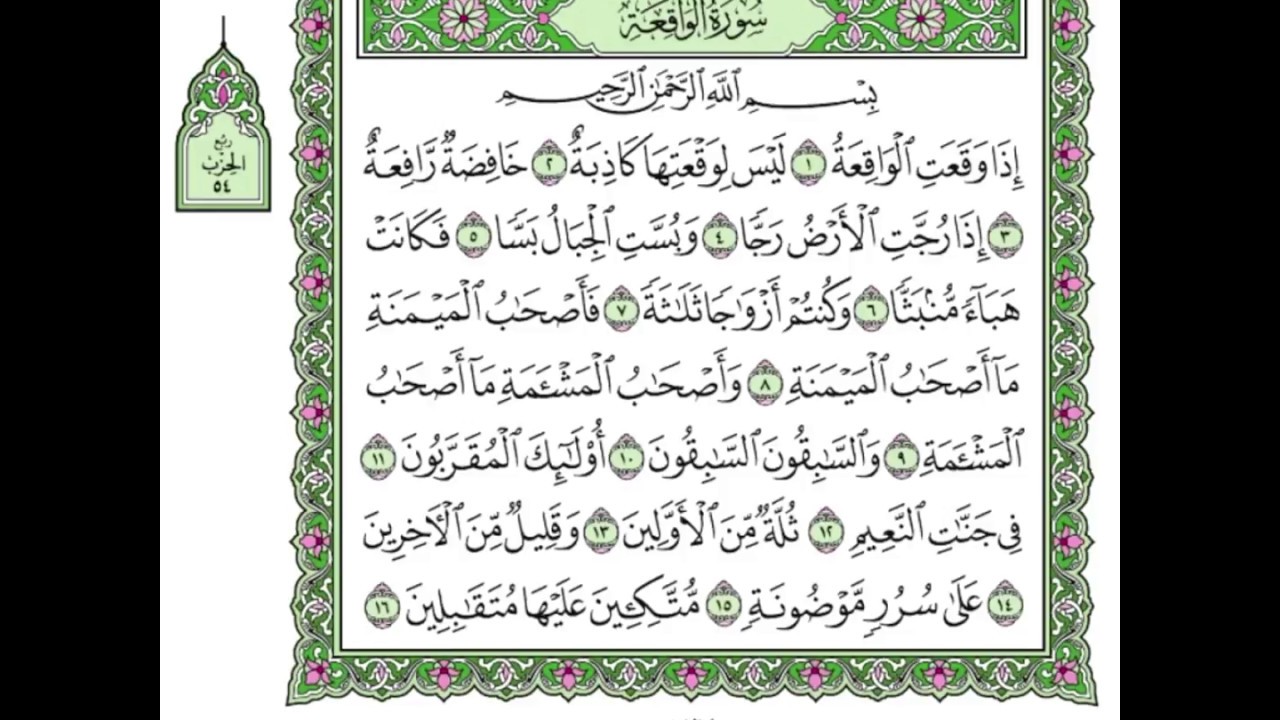 سُورَةُ الوَاقِعَةِ
بِسْمِ ٱللَّهِ ٱلرَّحْمَٰنِ ٱلرَّحِيمِ
إِذَا وَقَعَتِ ٱلْوَاقِعَةُ ١ لَيْسَ لِوَقْعَتِهَا كَاذِبَةٌ ٢ خَافِضَةٌ رَّافِعَةٌ
٣ إِذَا رُجَّتِ ٱلْأَرْضُ رَجًّا ٤ وَبُسَّتِ ٱلْجِبَالُ بَسًّا ٥ فَكَانَتْ
هَبَآءً مُّنۢبَثًّا ٦ وَكُنتُمْ أَزْوَٰجًا ثَلَٰثَةً ٧ فَأَصْحَٰبُ ٱلْمَيْمَنَةِ
مَآ أَصْحَٰبُ ٱلْمَيْمَنَةِ ٨ وَأَصْحَٰبُ ٱلْمَشْـَٔمَةِ مَآ أَصْحَٰبُ
ٱلْمَشْـَٔمَةِ ٩ وَٱلسَّٰبِقُونَ ٱلسَّٰبِقُونَ ١٠ أُوْلَٰٓئِكَ ٱلْمُقَرَّبُونَ ١١
فِى جَنَّٰتِ ٱلنَّعِيمِ ١٢ ثُلَّةٌ مِّنَ ٱلْأَوَّلِينَ ١٣ وَقَلِيلٌ مِّنَ ٱلْءَاخِرِينَ
١٤ عَلَىٰ سُرُرٍ مَّوْضُونَةٍ ١٥ مُّتَّكِـِٔينَ عَلَيْهَا مُتَقَٰبِلِينَ ١٦
رُبْعُ
الحِزْبِ
٥٤